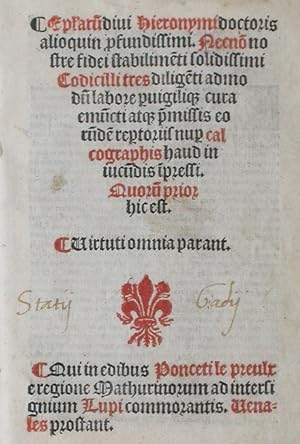 ¶Epl'arū diui Hieronymi doctoris
alioquin ꝓfundissimi. Necnō no
stre fidei stabilimēti solidissimi
Codicilli tres diligēti admo
dū labore ꝑuigiliqꝫ cura
emūcti atqꝫ p̄missis eo
rūdē rep̄toriis nuꝑ cal
cographis haud in
iucūdis īpressi.
Quorū prior
hic est.
¶Uirtuti omnia parant.
Statij Gadij
¶Qui in edibus Ponceti le preulx
e regione Mathurinorum ad intersi
gnium Lupi commorantis. Uena-
les prostant.